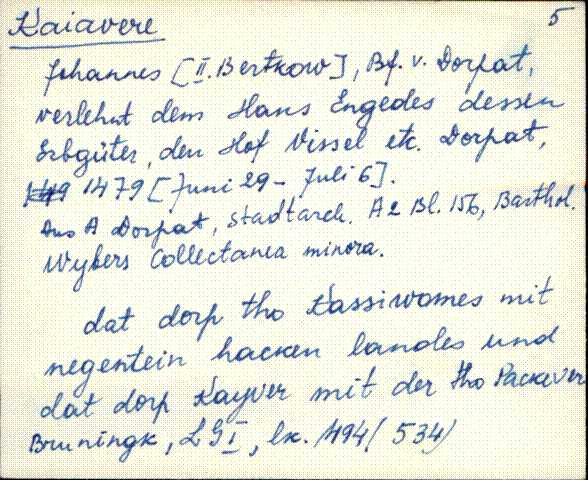 Kaiavere 5
Johannes [II. Bertkow], Bf. v. Dorpat,
verlehnt dem Hans Engedes dessen
Erbgüter, den Hof Vissel etc. Dorpat,
1479 [Juni 29 - Juli 6].
Aus A Dorpat, Stadtarch. A 2 Bl. 156, Barthol.
Wybers Collectanea minora.
dat dorp tho Kassiwomes mit
negentein hacken landes und
dat dorp Kayver mit der tho Packever
Bruningk, LG I, lk. 494 (534)